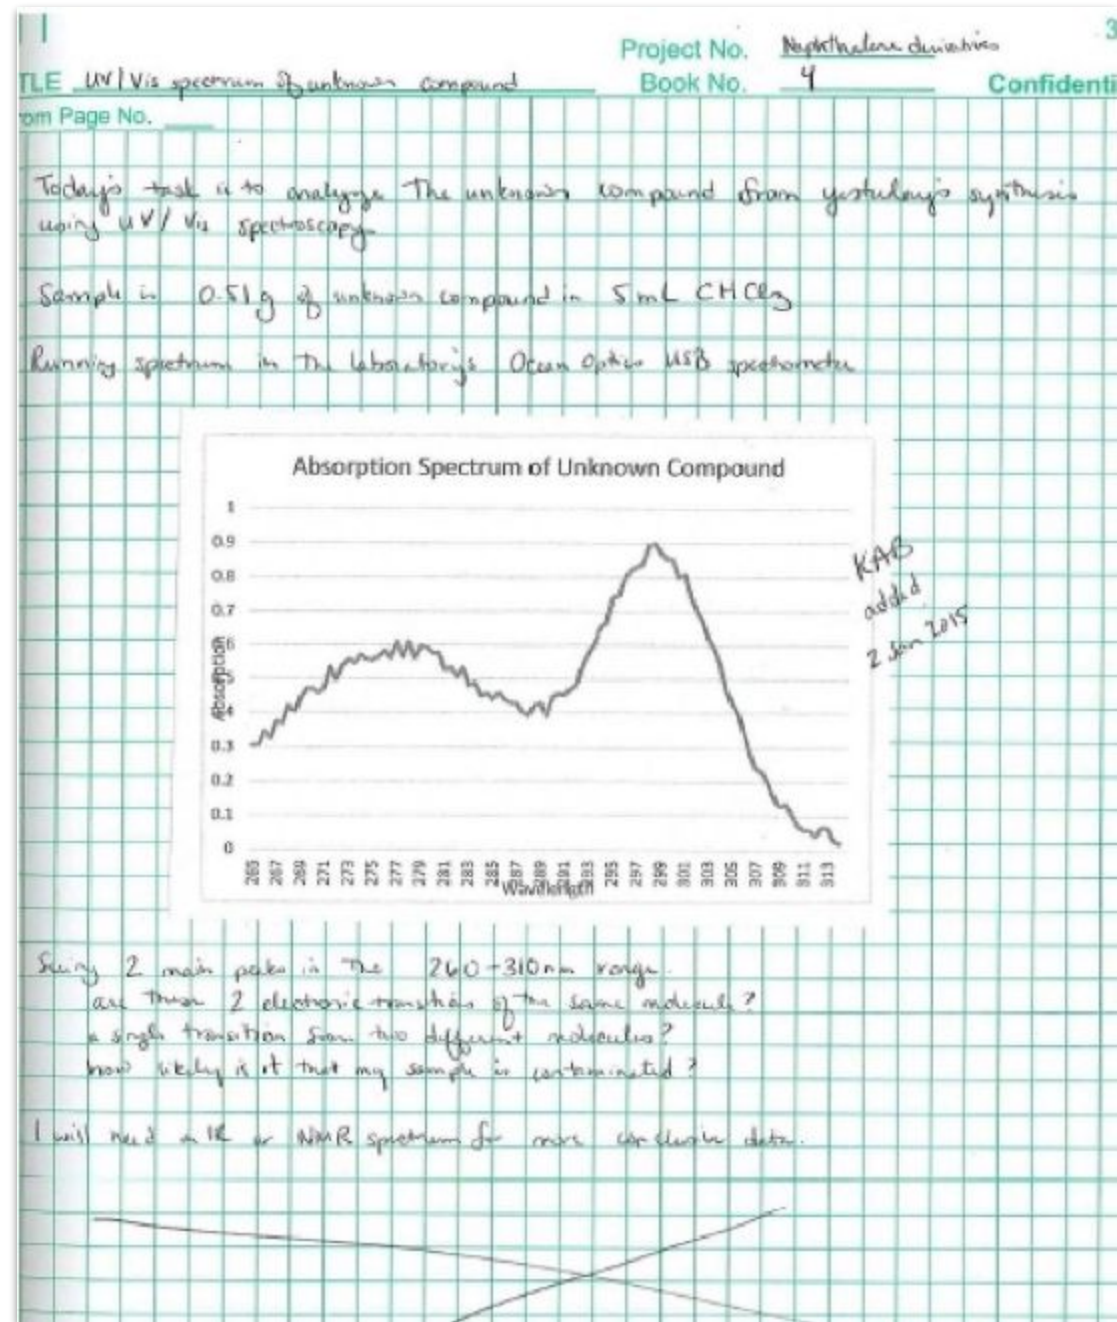 3
Project No. Naphthalene derivatives
TLE UV/Vis spectrum of unknown compound Book No. 4 Confidenti
om Page No.
Today's task is to analyze the unknown compound from yesterday's synthesis
using UV/Vis spectroscopy.
Sample is 0.51g of unknown compound in 5mL CHCl3
Running spectrum in the laboratory's Ocean Optics USB spectrometer
Absorption Spectrum of Unknown Compound
1
0.9
0.8
0.7
0.6
0.5
0.4
0.3
0.2
0.1
0
Absorption
265 267 269 271 273 275 277 279 281 283 285 287 289 291 293 295 297 299 301 303 305 307 309 311 313
Wavelength
KAB
added
2 Jan 2015
Seeing 2 main peaks in the 260-310nm range.
are these 2 electronic transitions of the same molecule?
a single transition from two different molecules?
how likely is it that my sample is contaminated?
I will need an IR or NMR spectrum for more conclusive data.